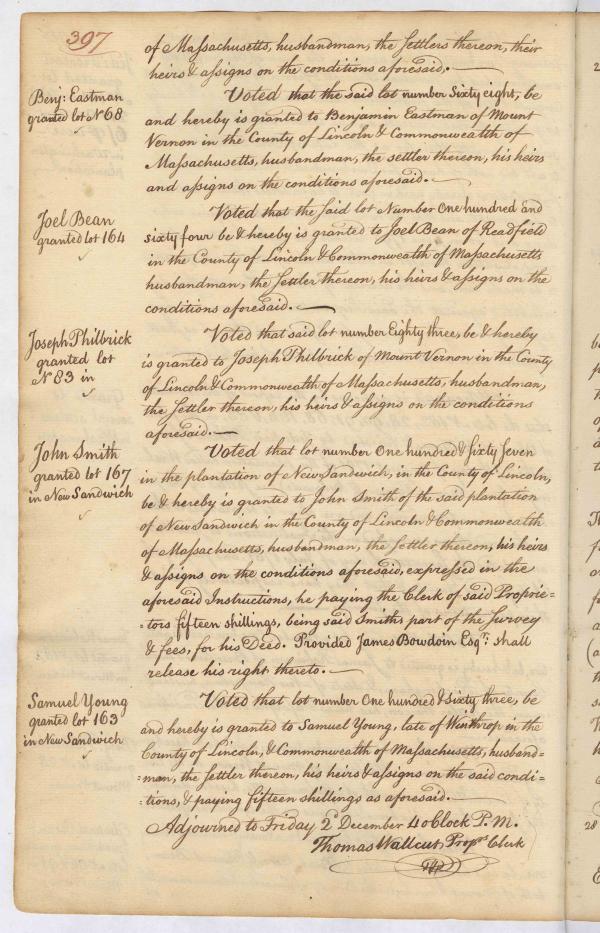 397
of Massachusetts, husbandman, the Settlers thereon, their
heirs & assigns on the conditions aforesaid.
Benj: Eastman
granted lot No 68
Voted that the said lot number Sixty eight, be
and hereby is granted to Benjamin Eastman of Mount
Vernon in the County of Lincoln & Commonwealth of
Massachusetts, husbandman, the settler thereon, his heirs
and assigns on the conditions aforesaid.
Joel Bean
granted lot 164
Voted that the said lot Number One hundred and
sixty four be & hereby is granted to Joel Bean of Readfield
in the County of Lincoln & Commonwealth of Massachusetts
husbandman, the Settler thereon, his heirs & assigns on the
conditions aforesaid.
Joseph Philbrick
granted lot
No 83 in
Voted that said lot number Eighty three, be & hereby
is granted to Joseph Philbrick of Mount Vernon in the County
of Lincoln & Commonwealth of Massachusetts, husbandman,
the Settler thereon, his heirs & assigns on the conditions
aforesaid.
John Smith
granted lot 167
in New Sandwich
Voted that lot number One hundred & Sixty Seven
in the plantation of New Sandwich, in the County of Lincoln,
be & hereby is granted to John Smith of the said plantation
of New Sandwich in the County of Lincoln & Commonwealth
of Massachusetts, husbandman, the Settler thereon, his heirs
& assigns on the conditions aforesaid, expressed in the
aforesaid Instructions, he paying the Clerk of said Proprie=
=tors fifteen shillings, being said Smiths part of the Survey
& fees, for his Deed. Provided James Bowdoin Esqr: shall
release his right thereto.
Samuel Young
granted lot 163
in New Sandwich
Voted that lot number One hundred & sixty three, be
and hereby is granted to Samuel Young, late of Winthrop in the
County of Lincoln, & Commonwealth of Massachusetts, husband=
=man, the Settler thereon, his heirs & assigns on the said condi=
=tions, & paying fifteen shillings as aforesaid.
Adjourned to Friday 2d December 4 oClock P.M.
Thomas Wallcut, Props Clerk
28